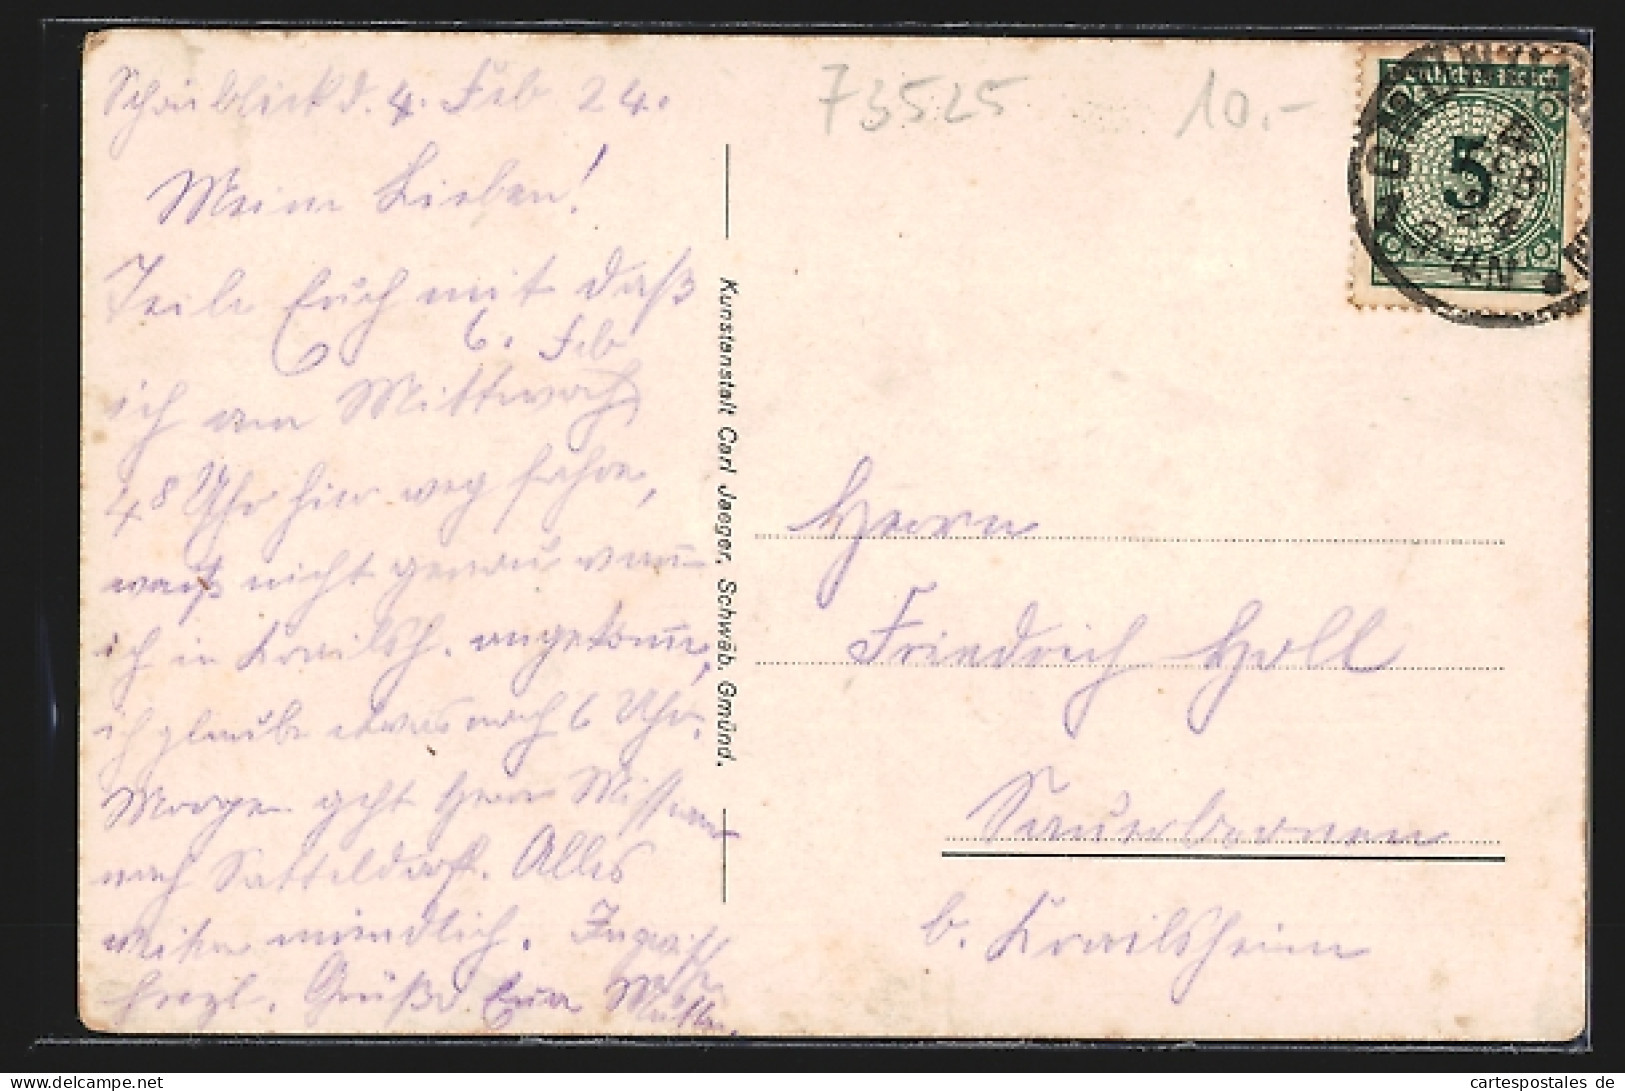 Schönblick d. 4. Feb 24.
Meine Lieben!
Teile Euch mit daß
6. Feb
ich am Mittwoch
4⁸ Uhr hier weg fahre,
weiß nicht genau wann
ich in Krailsh. angekomme,
ich glaube etwas nach 6 Uhr.
Morgen geht Herr
nach Satteldorf. Alles
weitere mündlich. Inzwisch
herzl. Grüße Eure Mutter.
Kunstanstalt Carl Jaeger, Schwäb. Gmünd.
73525 10.-
Deutsches Reich
5
Herrn
Friedrich Holl
Sauerbronnen
b. Krailsheim
cartespostales.de
www.cartespostales.de